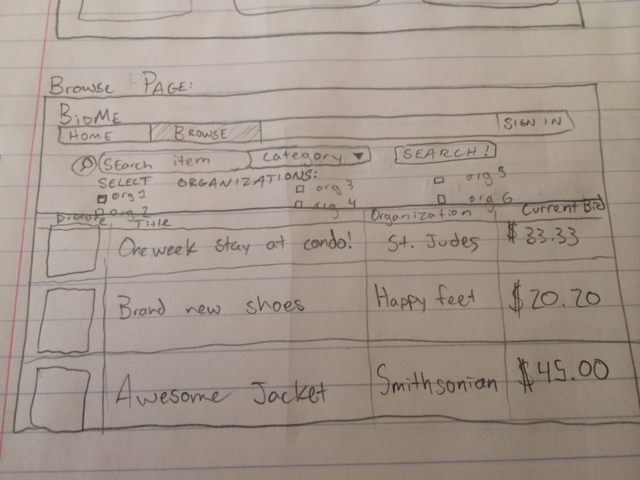 Browse PAGE:
BidMe
HOME BROWSE SIGN IN
Search item Category SEARCH!
SELECT ORGANIZATIONS:
org 1 org 3 org 5
org 2 org 4 org 6
Picture Title Organization Current Bid
One week stay at condo! St. Judes $33.33
Brand new shoes Happy feet $20.20
Awesome Jacket Smithsonian $45.00